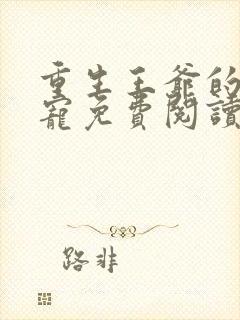 重生王爺的
寵免費閱讀
路非